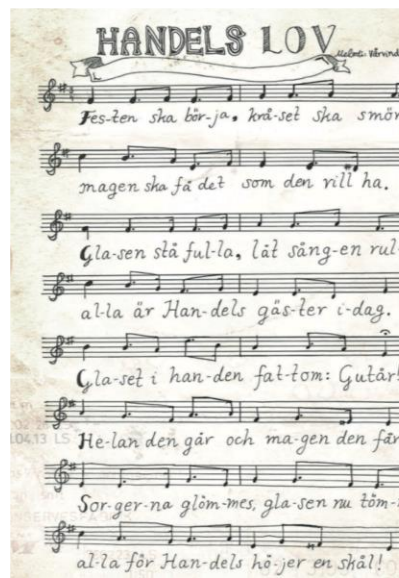 HANDELS LOV
Melodi:
Fes-ten ska bör-ja, krå-set ska smör
magen ska få det som den vill ha.
Gla-sen stå ful-la, låt sång-en rul-
al-la är Han-dels gäs-ter i-dag.
Gla-set i han-den fat-tom: Gutår!
He-lan den går och ma-gen den får
04.13 LS
Sor-ger-na glöm-mes, gla-sen nu töm-
al-la för Han-dels hö-jer en skål!